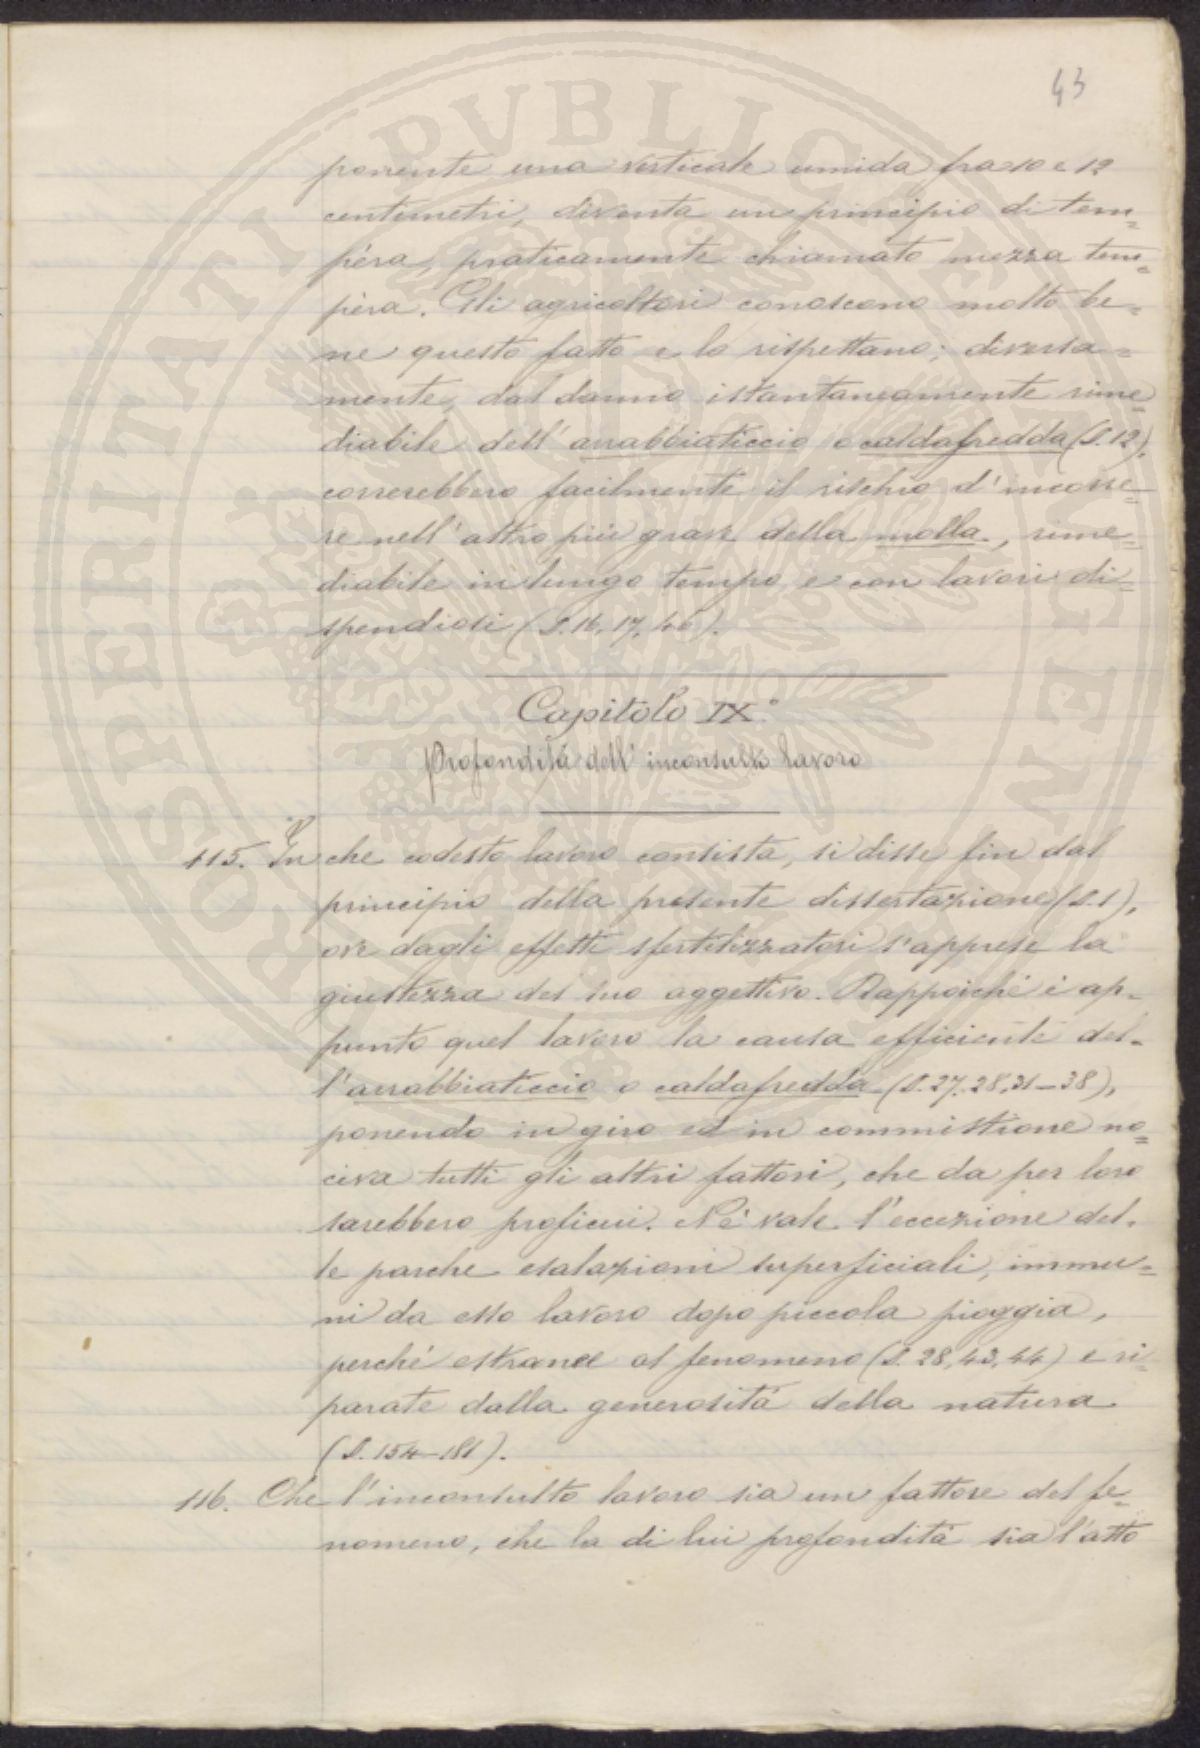 43
ponente una verticale umida fra 10 e 12
centimetri, diventa un principio di tem=
pèra, praticamente chiamato mezza tem=
pèra. Gli agricoltori conoscono molto be=
ne questo fatto e lo rispettano; diversa=
mente, dal danno istantaneamente rime=
diabile dell'arrabbiaticcio o caldafredda (§. 12),
correrebbero facilmente il rischio d'incorre=
re nell'altro più grave della molla, rime=
diabile in lungo tempo e con lavori di=
spendiosi (§. 16, 17, 46).
Capitolo IX.°
Profondità dell'inconsulto lavoro
115. In che codesto lavoro consista, si disse fin dal
principio della presente dissertazione (§. 1),
ove dagli effetti sfertilizzatori s'apprese la
giustezza del suo aggettivo. Dappoichè è ap=
punto quel lavoro la causa efficiente del=
l'arrabbiaticcio o caldafredda (§. 27, 28, 31-38),
ponendo in giro ed in commistione no=
civa tutti gli altri fattori, che da per loro
sarebbero proficui. Nè vale l'eccezione del=
le parche esalazioni superficiali, immu=
ni da esso lavoro dopo piccola pioggia,
perchè estranee al fenomeno (§. 28, 43, 44) e ri=
parate dalla generosità della natura
(§. 154-181).
116. Che l'inconsulto lavoro sia un fattore del fe=
nomeno, che la di lui profondità sia l'atto
PROSPERITATI PUBLICAE AUGENDAE